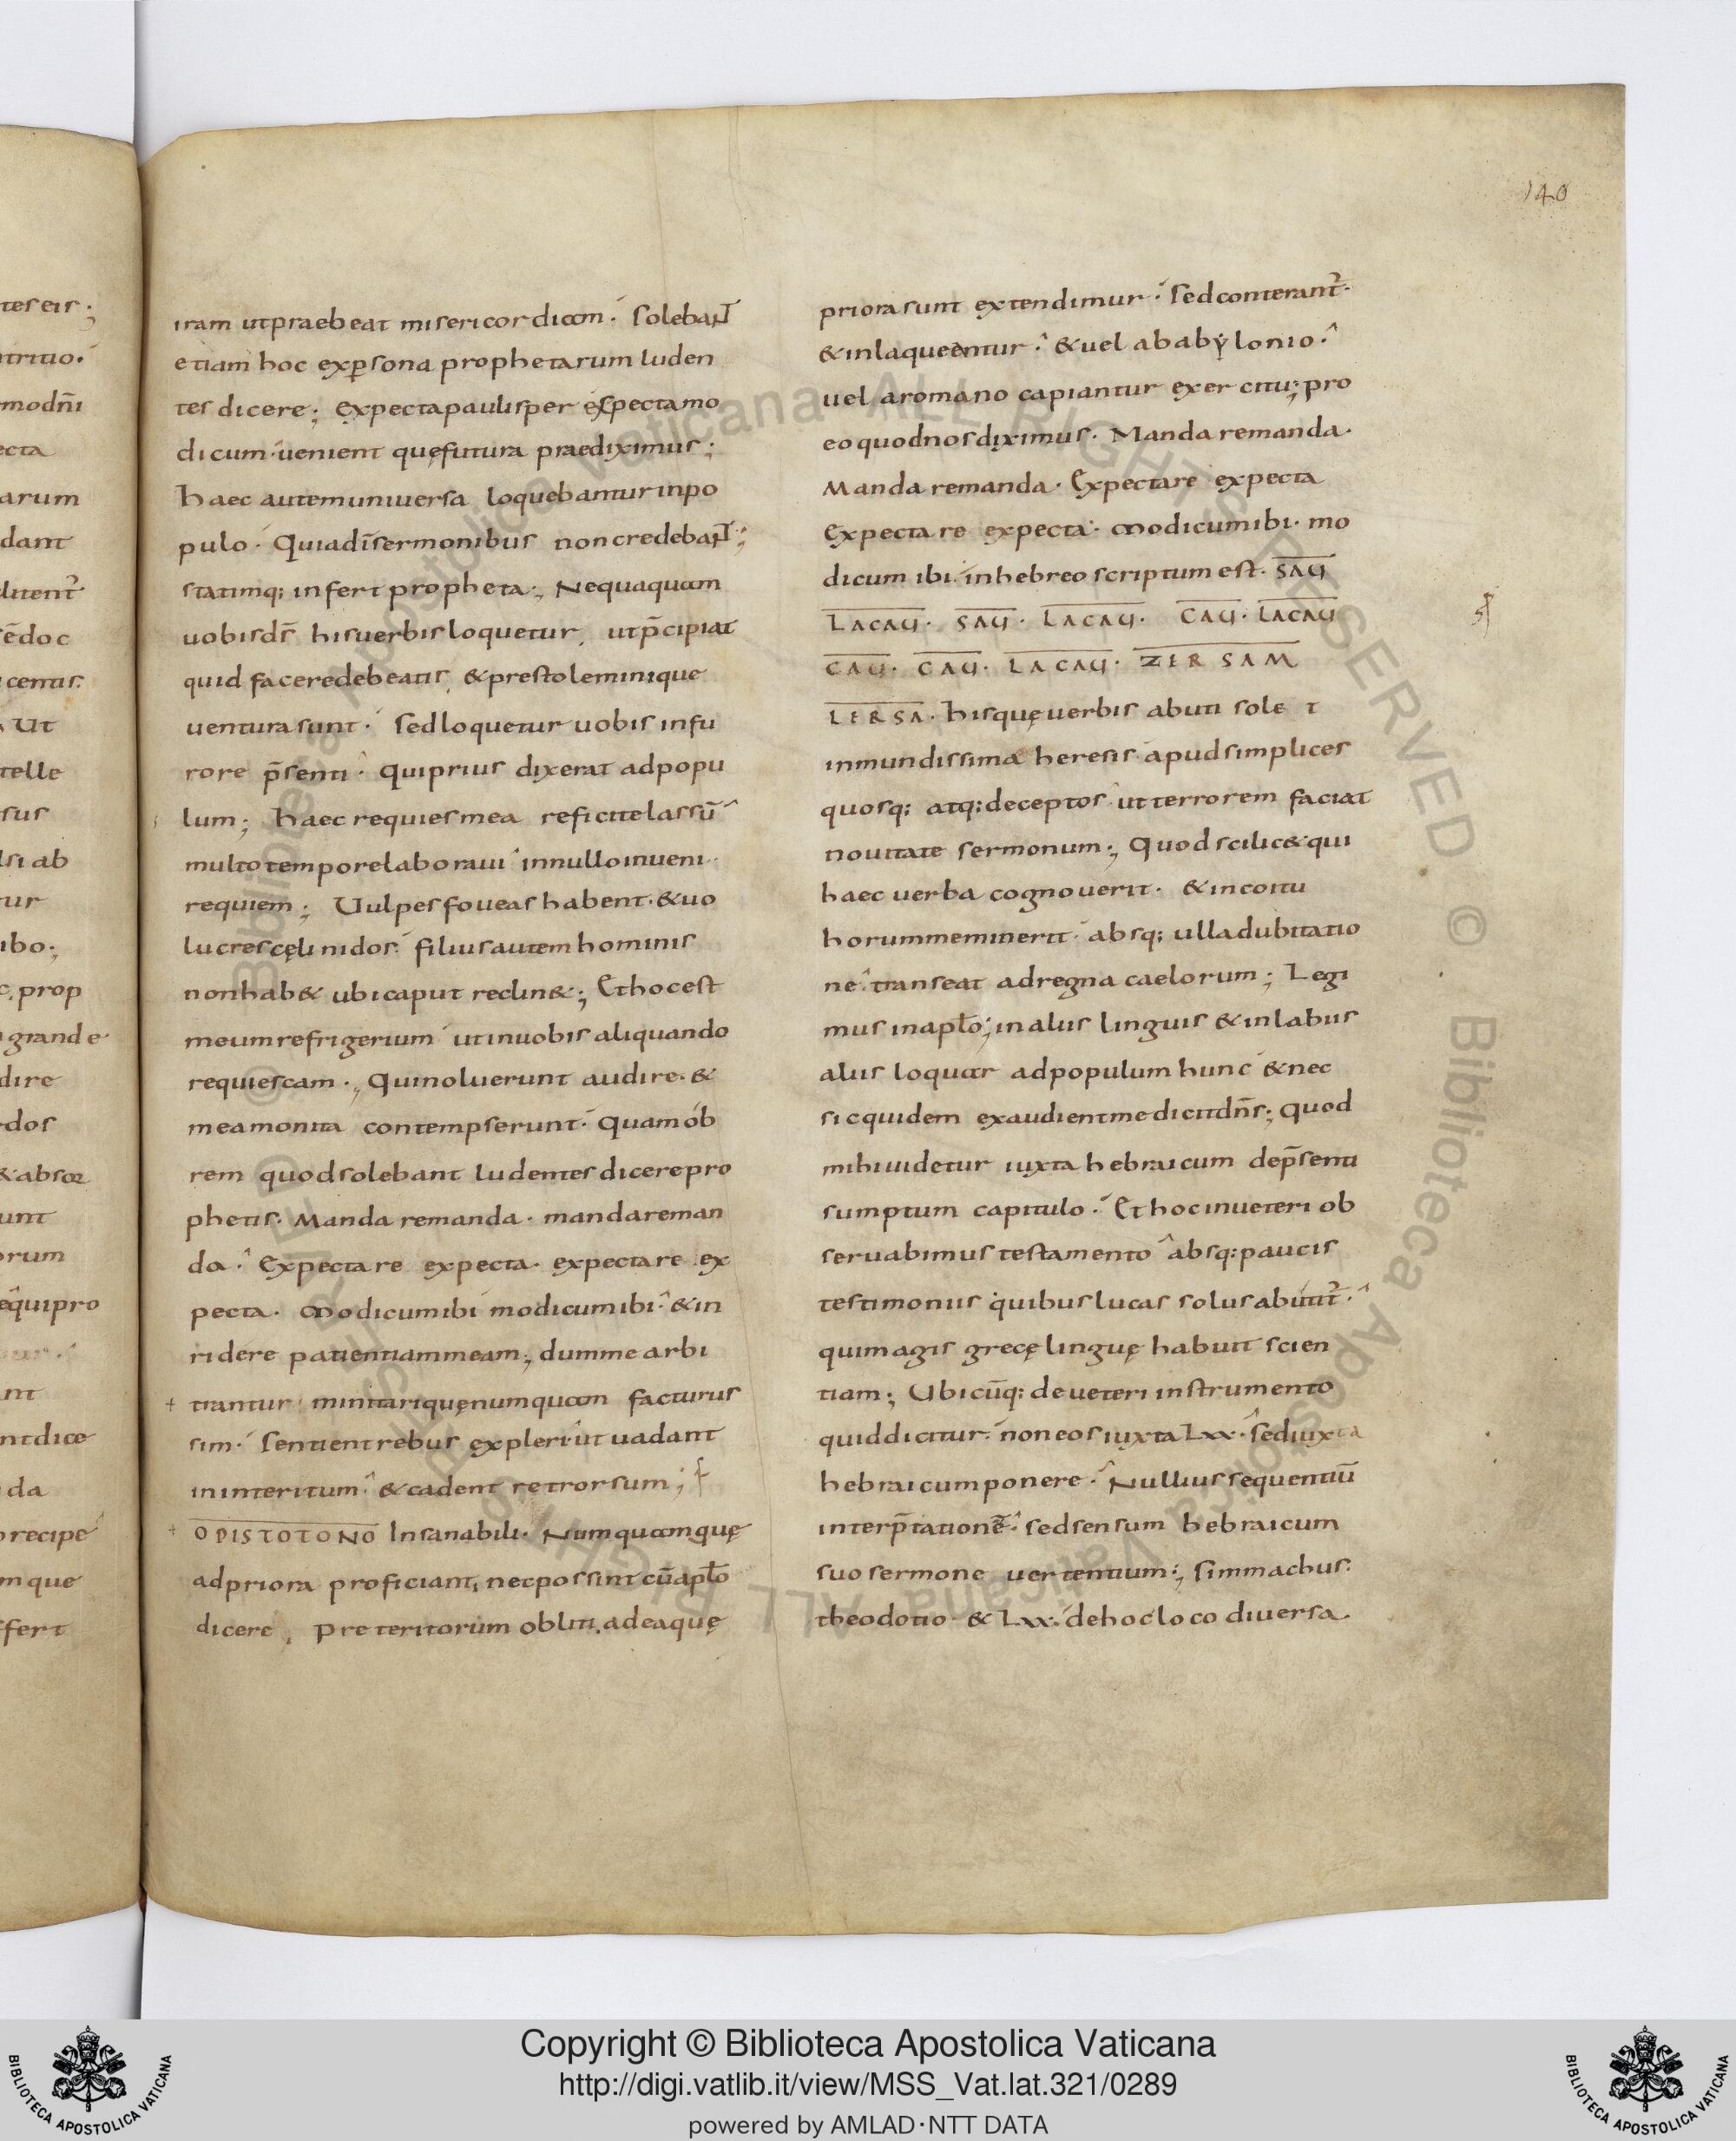 teseir ;
tritio .
modñi
ecta
arum
dant
litent᷑
sēdoc
centis.
Ut
telle
sus
lsi ab
tur
ibo ;
c. prop
grande
dire
dos
& absor
unt
orum
equipro
nt
ntdice
da
recipe
mque
ffert
iram utpraebeat misericordiam . solebaɴᴛ
etiam hoc exꝑsona prophetarum luden
tes dicere ; Expectapaulisper expectamo
dicum . uenient quęfutura praediximus ;
haec autemuniuersa loquebanturinpo
pulo . Quiadīsermonibus noncredebaɴᴛ ;
statimq; infert propheta ; Nequaquam
uobisdr̄ hisuerbisloquetur , utp̄cipiat
quid faceredebeatis , &prestoleminique
uenturasunt . sedloquetur uobis infu
rore p̄senti . quiprius dixerat adpopu
lum ; haec requiesmea reficitelassū
multotemporelaboraui innulloinueni .
requiem ; Uulpesfoueashabent . &uo
lucrescęli nidos . filiusautemhominis
nonhab& ubicaput reclin& ; Ethocest
meumrefrigerium utinuobisaliquando
requiescam . , Quinoluerunt audire . &
meamonita contempserunt . Quamob
rem quodsolebant ludentesdicerepro
phetis . Manda remanda . mandareman
da . Expectare expecta . expectare ex
pecta . Modicumibi modicumibi . &in
ridere patientiammeam ; dummearbi
trantur minitariquęnumquam facturus
sim . sentientrebus expleri ut uadant
ininteritum . &cadent retrorsum ;
OPISTOTONO Insanabili . Numquamquę
adpriora proficiant , necpossintcūapl̄o
dicere , Preteritorum obliti . adeaquę
140
priorasunt extendimur . sedconterant᷑ .
&inlaqueentur . &uel ababylonio .
uel aromano capiantur exercitu ; pro
eoquodnosdiximus . Manda remanda .
Manda remanda . Expectare expecta
Expectare expecta . Modicumibi . mo
dicum ibi . inhebreo scriptum est . SAU
LACAU . SAU . LACAU . CAU . LACAU
CAU . CAU . LACAU . ZER SAM
LERSA . hisquęuerbis abuti solet
inmundissima heresis apudsimplices
quosq; atq; deceptos ut terrorem faciat
nouitate sermonum ; Quodscilic&qui
haec uerba cognouerit . &incoitu
horummeminerit . absq; ulladubitatio
ne . transeat adregna caelorum ; Legi
mus inapl̄o ; inaliis linguis &inlabiis
aliis loquar adpopulumhunc &nec
sicquidem exaudientmedicitdn̄s ; quod
mihiuidetur iuxta hebraicum dep̄senti
sumptum capitulo . Ethocinueteri ob
seruabimustestamento absq; paucis
testimoniis quibuslucas solusabutit᷑ .
quimagis gręcęlinguę habuit scien
tiam ; Ubicūq; deueteri instrumento
quiddicitur . noneosiuxtaLxx . sediuxta
hebraicumponere . Nulliussequentiū
interp̄tationē . sedsensum hebraicum
suosermone uertentium ; simmachus .
theodotio & Lxx . dehocloco diuersa .
Copyright © Biblioteca Apostolica Vaticana
http://digi.vatlib.it/view/MSS_Vat.lat.321/0289
powered by AMLAD·NTT DATA
BIBLIOTECA APOSTOLICA VATICANA
BIBLIOTECA APOSTOLICA VATICANA